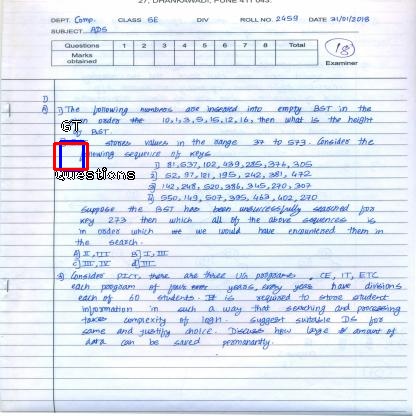 27, DHANKAWADI, PUNE 411 043.
DEPT. Comp. CLASS SE DIV ROLL NO. 2459 DATE 31/01/2018
SUBJECT. ADS
Questions 1 2 3 4 5 6 7 8 Total
Marks obtained
18
Examiner
1)
A) 1) The following numbers are inserted into empty BST in the
order 10,1,3,5,15,12,16, then what is the height
of BST.
GT
stores values in the range 37 to 573. Consider the
following sequence of keys
1) 81,537,102,439,285,376,305
Questions
2) 52, 97, 121, 195, 242, 381, 472
3) 142, 248, 520, 386, 345, 270, 307
4) 550, 149, 507, 395, 463, 402, 270
Suppose the BST has been unsuccessfully searched for
key 273 then which all of the above sequences is
in order which we would have encountered them in
the search.
A) II, III B) I, III
C) III, IV d) III
2) Consider PICT, there are three UG programs, CE, IT, ETC
each program of four years, every year have divisions
each of 60 students. It is required to store student
information in such a way that searching and processing
takes complexity of logn. suggest suitable DS for
same and justify choice. Discuss how large amount of
data can be saved permanantly.